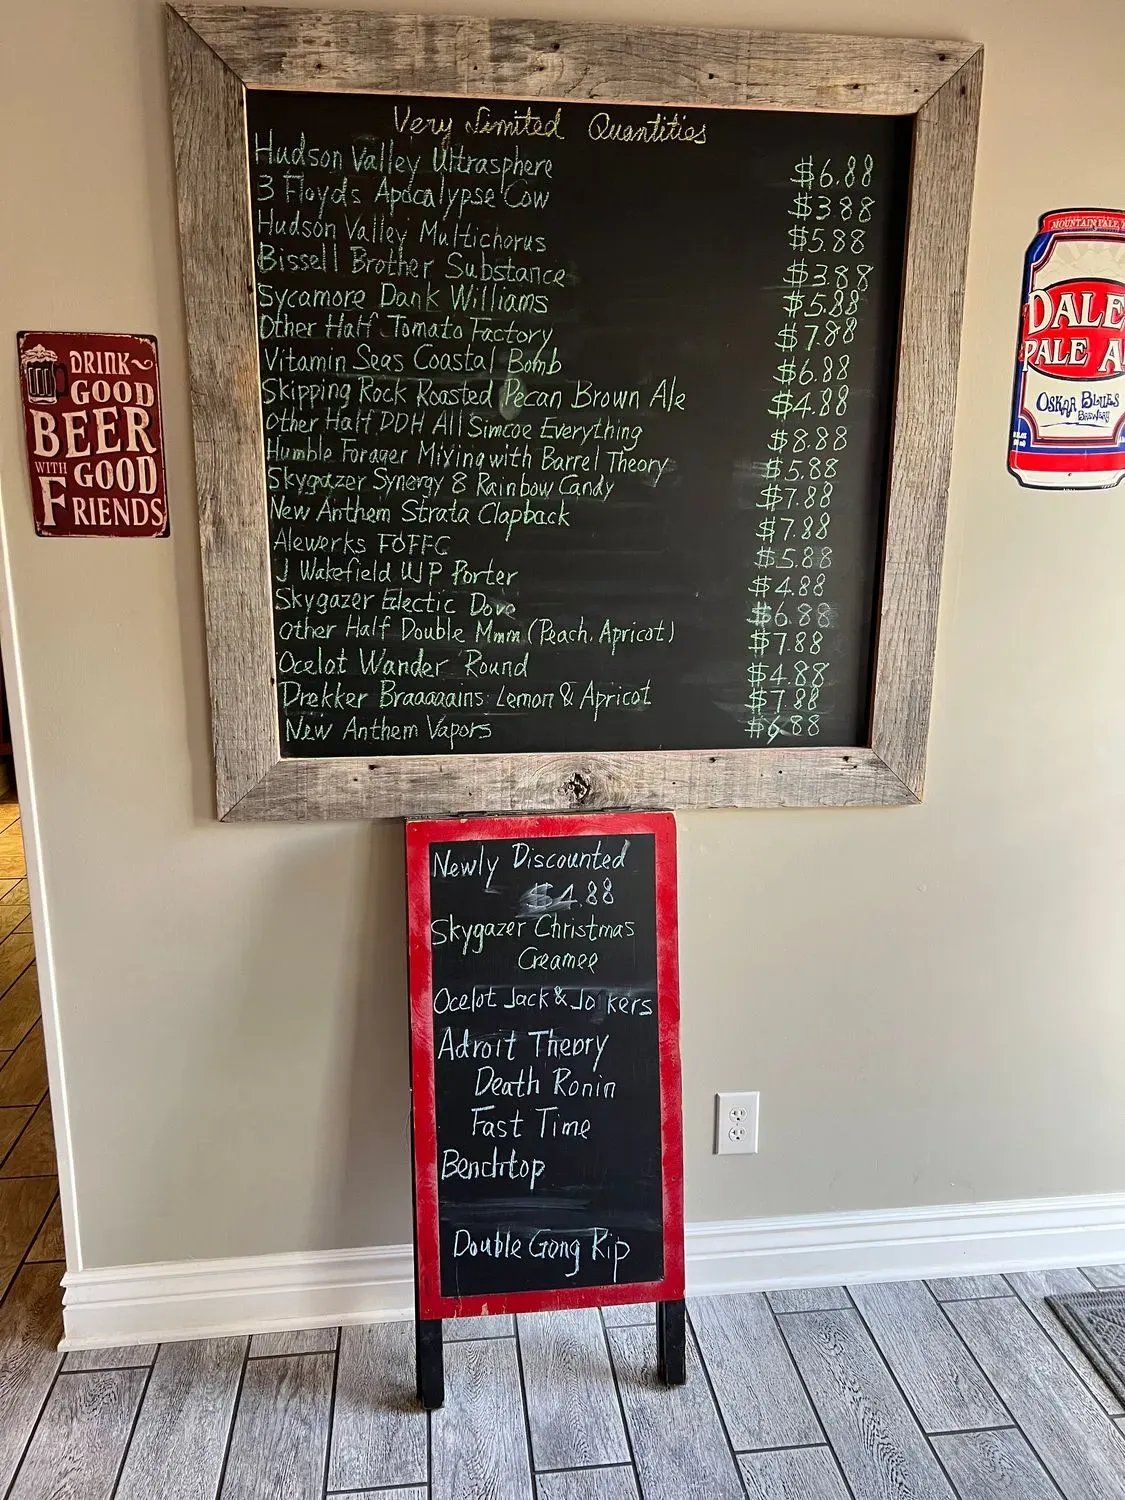 Very Limited Quantities
Hudson Valley Ultrasphere $6.88
3 Floyds Apocalypse Cow $3.88
Hudson Valley Multichorus $5.88
Bissell Brother Substance $3.88
Sycamore Dank Williams $5.88
Other Half Tomato Factory $7.88
Vitamin Seas Coastal Bomb $6.88
Skipping Rock Roasted Pecan Brown Ale $4.88
Other Half DDH All Simcoe Everything $8.88
Humble Forager Mixing with Barrel Theory $5.88
Skygazer Synergy 8 Rainbow Candy $7.88
New Anthem Strata Clapback $7.88
Alewerks FOFFC $5.88
J Wakefield WP Porter $4.88
Skygazer Eclectic Dove $6.88
Other Half Double Mmm (Peach, Apricot) $7.88
Ocelot Wander 'Round $4.88
Drekker Braaaaains: Lemon & Apricot $7.88
New Anthem Vapors $6.88
DRINK
GOOD
BEER
WITH GOOD
FRIENDS
MOUNTAIN PALE
DALE
PALE A
OSKAR BLUES
BREWERY
Newly Discounted
$4.88
Skygazer Christmas
Creamee
Ocelot Jack & Jokers
Adroit Theory
Death Ronin
Fast Time
Benchtop
Double Gong Rip